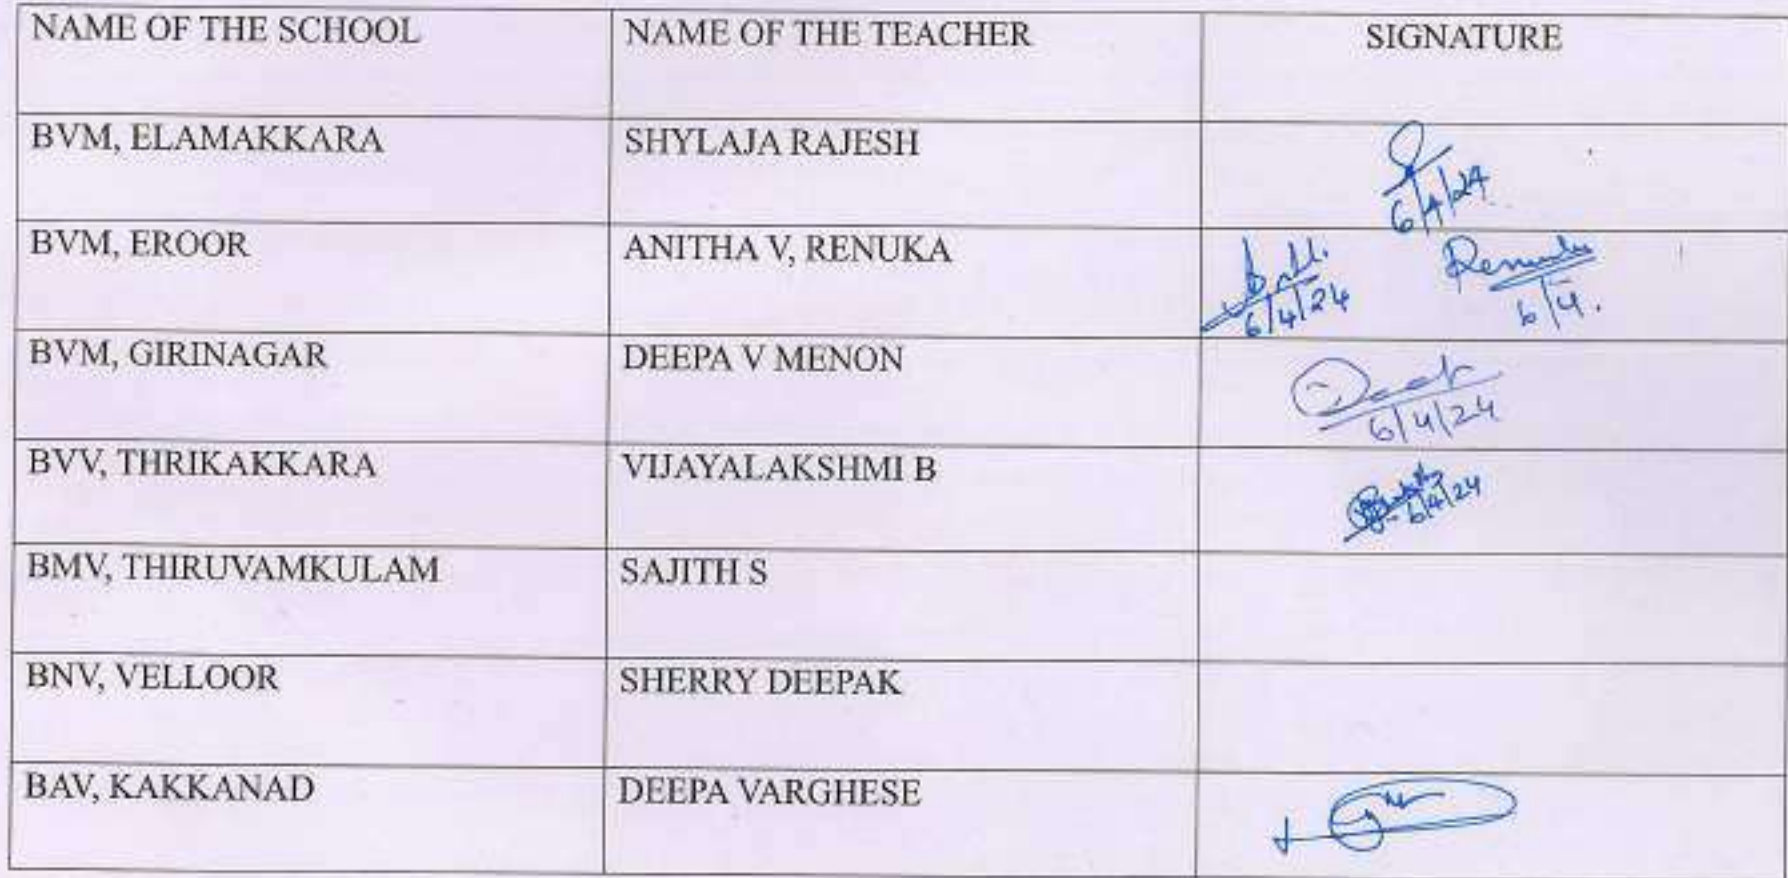 NAME OF THE SCHOOL NAME OF THE TEACHER SIGNATURE
BVM, ELAMAKKARA SHYLAJA RAJESH
6/4/24
BVM, EROOR ANITHA V, RENUKA
Renuka
6/4/24 6/4.
BVM, GIRINAGAR DEEPA V MENON
6/4/24
BVV, THRIKAKKARA VIJAYALAKSHMI B
6/4/24
BMV, THIRUVAMKULAM SAJITH S
BNV, VELLOOR SHERRY DEEPAK
BAV, KAKKANAD DEEPA VARGHESE